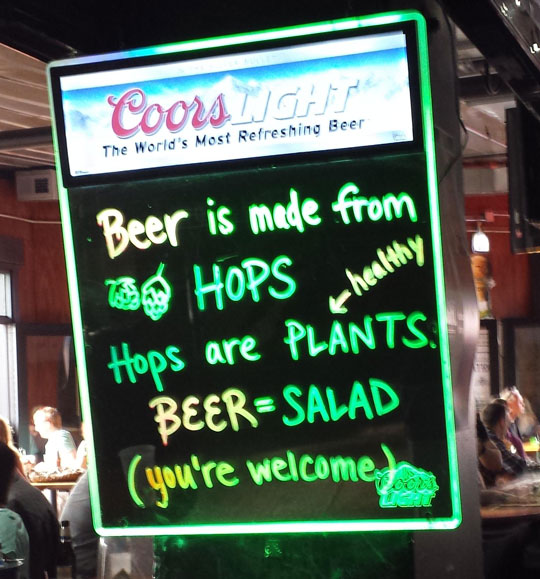 Coors LIGHT
The World's Most Refreshing Beer
Beer is made from
HOPS
healthy
Hops are PLANTS.
BEER = SALAD
(you're welcome.)
Coors
LIGHT